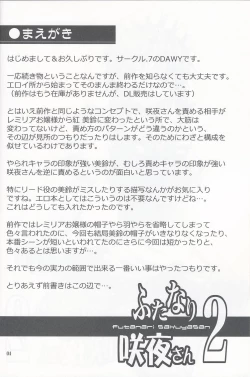 ●まえがき
はじめまして＆お久しぶりです。サークル.7のDAWYです。
一応続き物ということなんですが、前作を知らなくても大丈夫です。
エロイ所から始まってそのまんま終わるだけなので…。
(前作はもう在庫がありませんが、DL販売はしています)
とはいえ前作と同じようなコンセプトで、咲夜を責める相手が
レミリアお嬢様から紅 美鈴に変わったという所で、大筋は
変わってないけど、責め方のパターンがどう違うのかという、
その辺が見所のつもりだったりはします。そのためにわざと構成を
似せているわけであります。
やられキャラの印象が強い美鈴が、むしろ責めキャラの印象が強い
咲夜さんを逆に責めるというのが面白いと思っています。
特にリード役の美鈴がミスしたりする描写なんかがお気に入り
ですね。エロ本としてはこういうのは不要なんですけどね…。
これはどうしても入れたかったのです。
前作ではレミリアお嬢様の帽子やら羽やらを省略してしまって
色々言われたのに、今回も結局美鈴の帽子がいきなりなくなったり、
本番シーンが短いといわれてたのにさらに今回は短かったりと、
色々あるとは思いますが…。
それでも今の実力の範囲で出来る一番いい事はやったつもりです。
とりあえず前書きはこの辺で…。
ふたなり
Futanari Sakuyasan
咲夜さん2